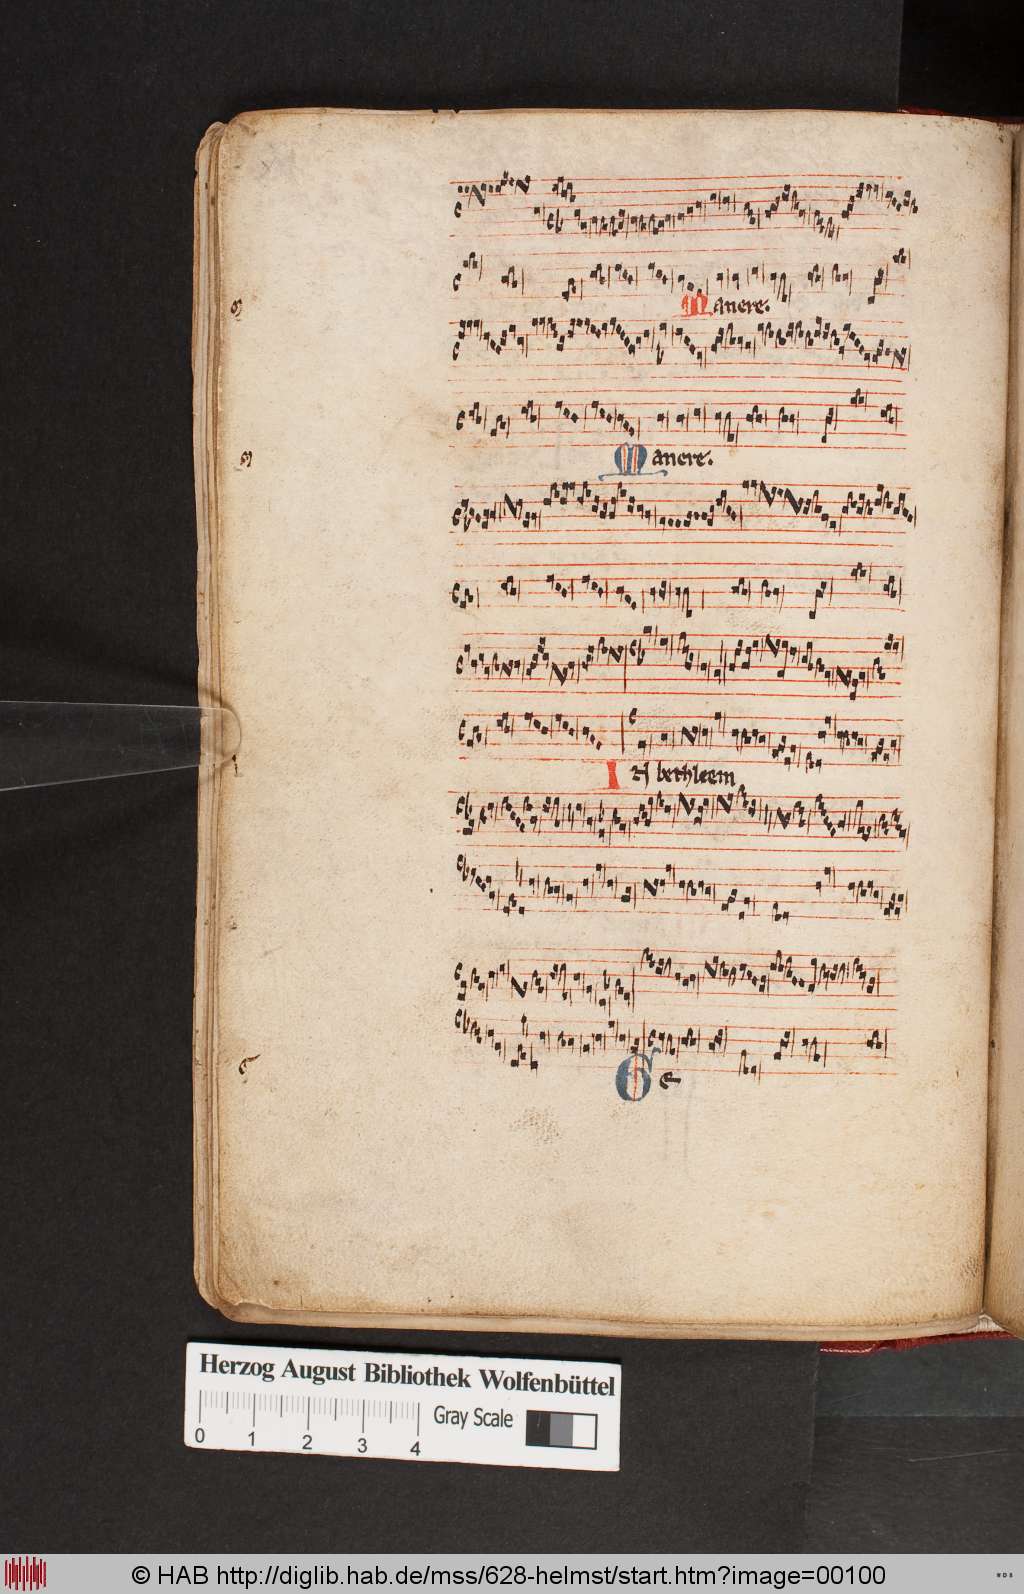 Manere.
Manere.
In bethleem
Ge
Herzog August Bibliothek Wolfenbüttel
Gray Scale
0 1 2 3 4
© HAB http://diglib.hab.de/mss/628-helmst/start.htm?image=00100